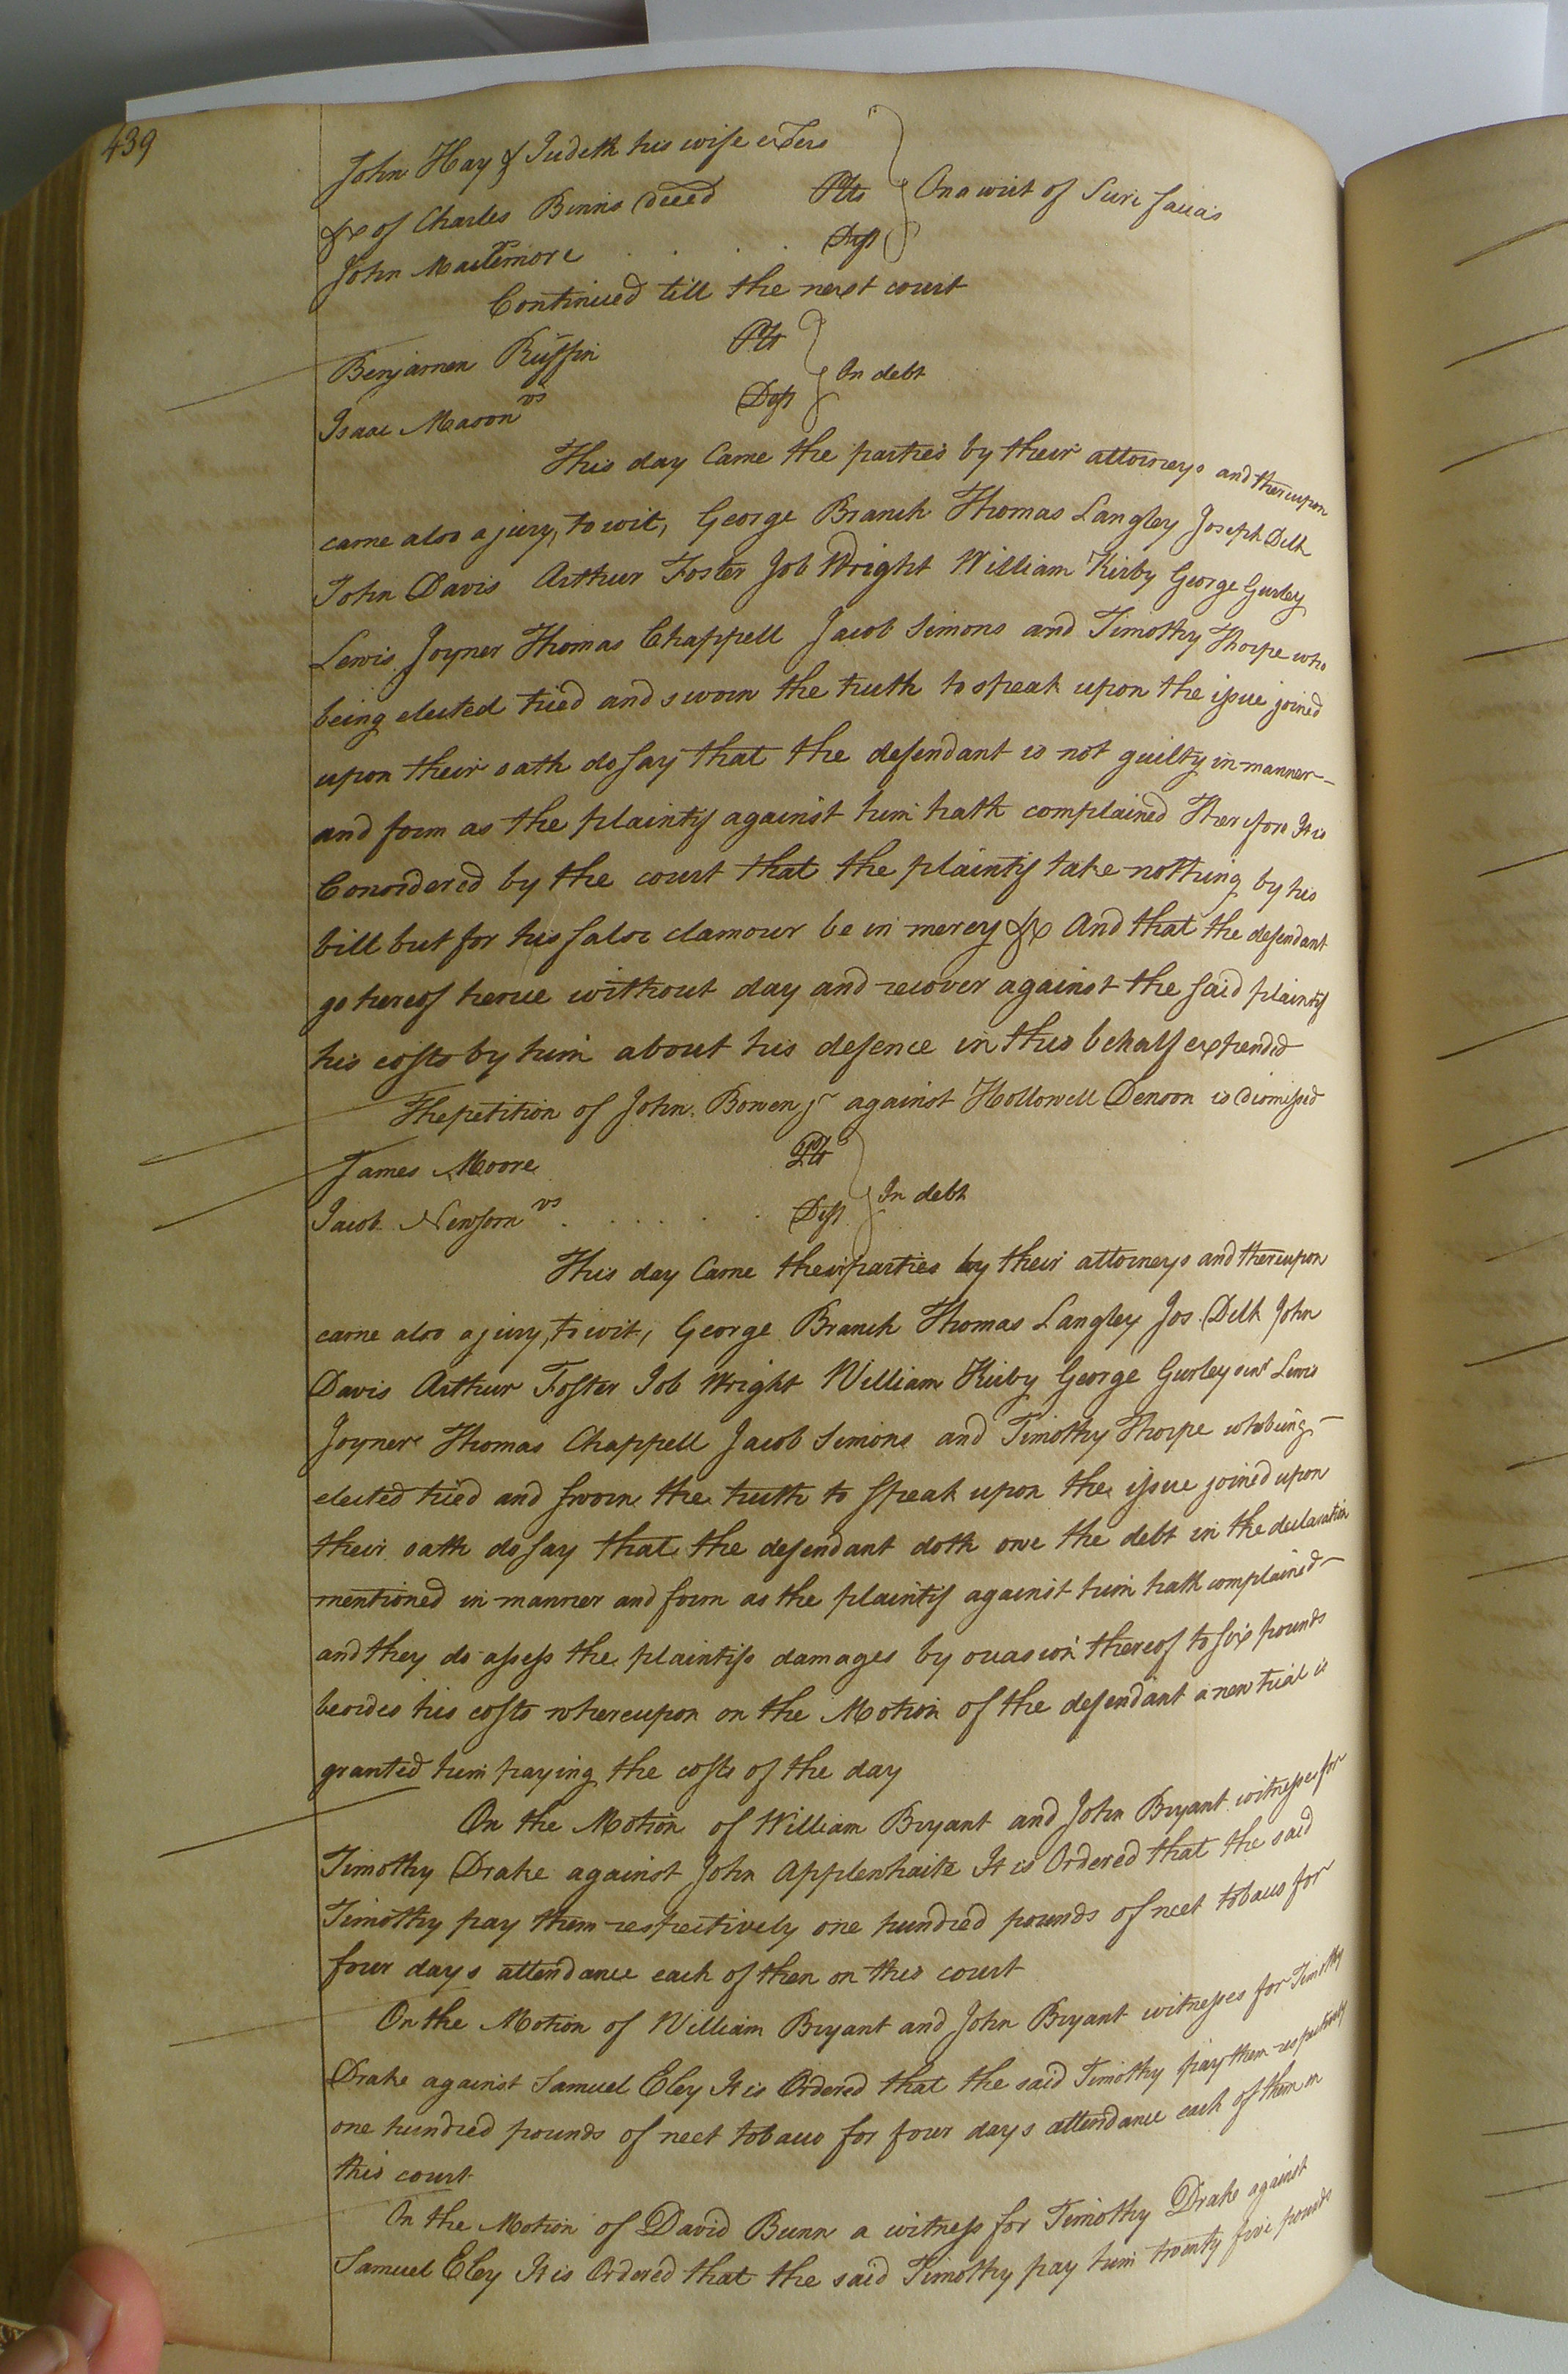 439
John Hay & Judeth his wife exŏrs
&c of Charles Binns deced Plts
On a writ of Scire facias
John Mactemore . . . Deft
Continued till the next court
Benjamen Ruffin Plt
In debt
Isaac Mason vs Deft
This day Came the parties by their attorneys and thereupon
came also a jury, to wit, George Branch Thomas Langley Joseph Delk
John Davis Arthur Foster Job Wright William Kirby George Gurley
Lewis Joyner Thomas Chappell Jacob Simons and Timothy Thorpe who
being elected tried and sworn the truth to speak upon the issue joined
upon their oath do say that the defendant is not guilty in manner
and form as the plaintif against him hath complained Therefore It is
Considered by the court that the plaintif take nothing by his
bill but for his false clamour be in mercy &c And that the defendant
go hereof hence without day and recover against the said plaintif
his costs by him about his defence in this behalf expended
The petition of John Bowen jr against Hollowell Denson is dismissed
James Moore Plt
In debt
Jacob Newsom vs . . . . . Deft
This day Came their parties by their attorneys and thereupon
came also a jury, to wit, George Branch Thomas Langley Jos. Delk John
Davis Arthur Foster Job Wright William Kirby George Gurley senr Lewis
Joyner Thomas Chappell Jacob Simons and Timothy Thorpe who being
elected tried and sworn the truth to speak upon the issue joined upon
their oath do say that the defendant doth owe the debt in the declaration
mentioned in manner and form as the plaintif against him hath complained
and they do assess the plaintifs damages by occasion thereof to six pounds
besides his costs whereupon on the Motion of the defendant a new trial is
granted him paying the costs of the day
On the Motion of William Bryant and John Bryant witnesses for
Timothy Drake against John Applewhaite It is Ordered that the said
Timothy pay them respectively one hundred pounds of neet tobacco for
four days attendance each of them on this court
On the Motion of William Bryant and John Bryant witnesses for Timothy
Drake against Samuel Eley It is Ordered that the said Timothy pay them respectively
one hundred pounds of neet tobacco for four days attendance each of them on
this court
On the Motion of David Bunn a witness for Timothy Drake against
Samuel Eley It is Ordered that the said Timothy pay him twenty five pounds